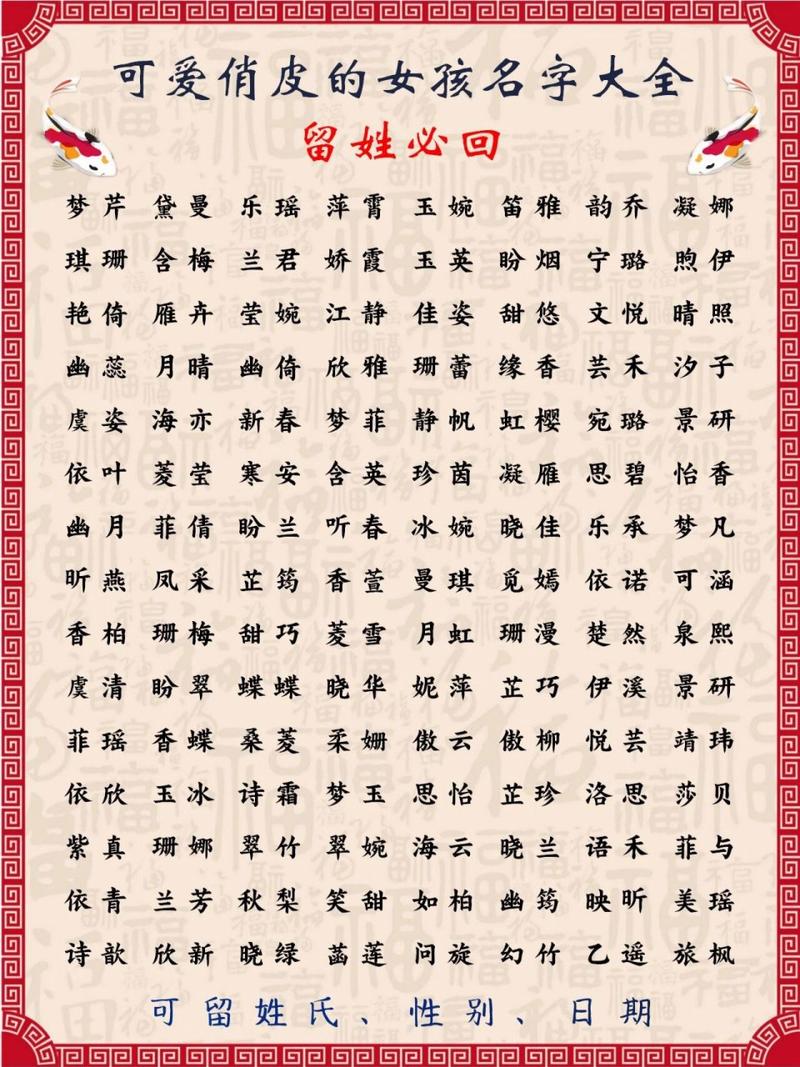 可爱俏皮的女孩名字大全
留姓必回
梦芹 黛曼 乐瑶 萍霄 玉婉 笛雅 韵乔 凝娜
琪珊 含梅 兰君 娇霞 玉英 盼烟 宁璐 煦伊
艳倚 雁卉 莹婉 江静 佳姿 甜悠 文悦 晴照
幽蕊 月晴 幽倚 欣雅 珊蕾 缘香 芸禾 汐子
虞姿 海亦 新春 梦菲 静帆 虹樱 宛璐 景研
依叶 菱莹 寒安 含英 珍茵 凝雁 思碧 怡香
幽月 菲倩 盼兰 听春 冰婉 晓佳 乐承 梦凡
昕燕 凤采 芷筠 香萱 曼琪 觅嫣 依诺 可涵
香柏 珊梅 甜巧 菱雪 月虹 珊漫 楚然 泉熙
虞清 盼翠 蝶蝶 晓华 妮萍 芷巧 伊溪 景研
菲瑶 香蝶 桑菱 柔姗 傲云 傲柳 悦芸 靖玮
依欣 玉冰 诗霜 梦玉 思怡 芷珍 洛思 莎贝
紫真 珊娜 翠竹 翠婉 海云 晓兰 语禾 菲与
依青 兰芳 秋梨 笑甜 如柏 幽筠 映昕 美瑶
诗歆 欣新 晓绿 菡莲 问旋 幻竹 乙遥 旅枫
可留姓氏、性别、日期